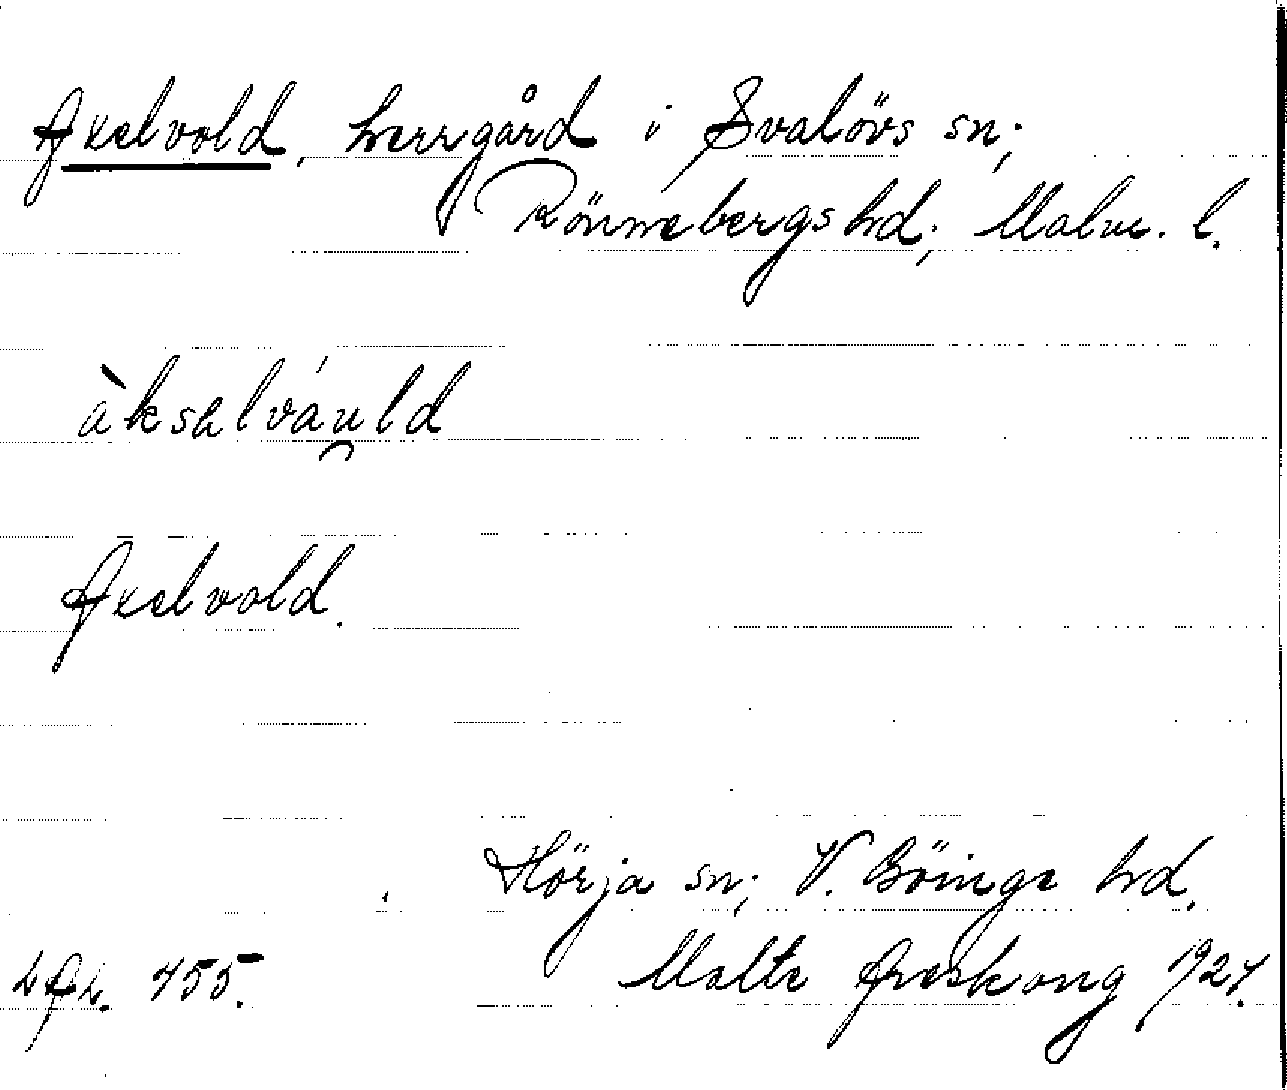 Axelvold, herrgård i Svalövs sn;
Rönnebergs hd; Malm. l.
àksəlváu̯ld
Axelvold.
Hörja sn; V. Göinge hd.
455. Malte 1927.